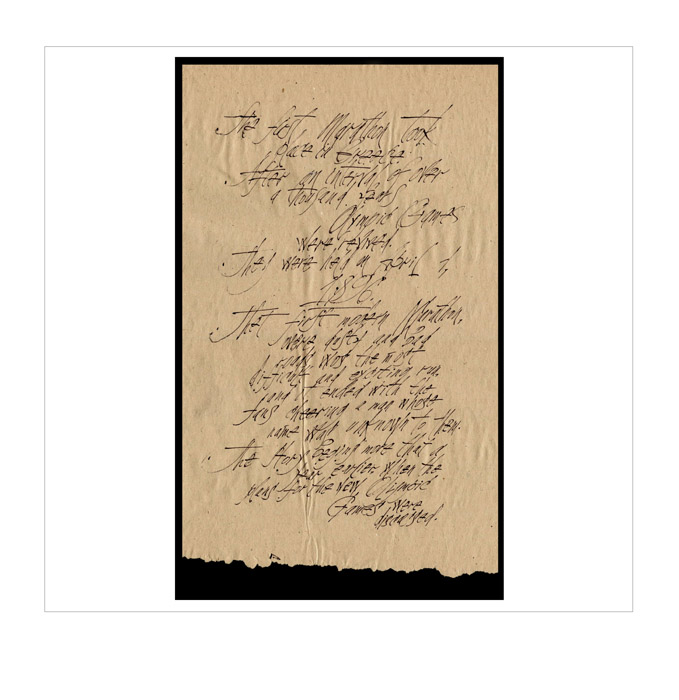 The first Marathon took
place in Greece.
After an interval of over
a thousand years
Olympic Games
were revived.
They were held on April 1,
1896.
That first modern Marathon,
over dusty and bad
roads was the most
difficult and exciting run
and it ended with the
fans cheering a man whose
name was unknown to them.
The story begins more that a
year earlier when the
plans for the new Olympic
Games were
discussed.